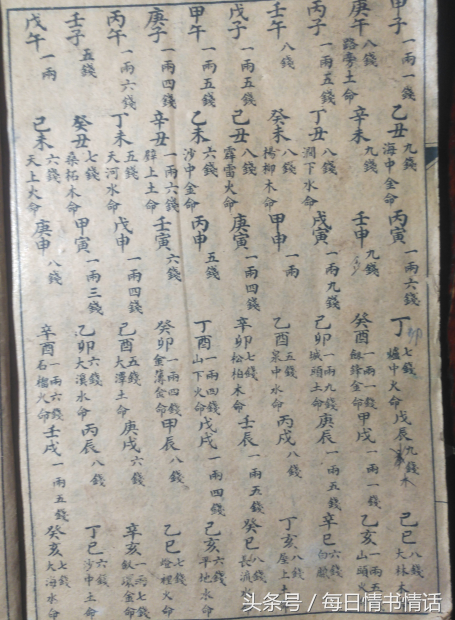 甲子 一兩一錢 乙丑 九錢 海中金命 丙寅 一兩六錢 丁卯 七錢 爐中火命 戊辰 九錢 木 己巳 八錢 大林木
庚午 八錢 路旁土命 辛未 九錢 壬申 九錢 癸酉 一兩一錢 劍鋒金命 甲戌 一兩一錢 乙亥 一兩五 山頭火
丙子 一兩五錢 丁丑 八錢 澗下水命 戊寅 一兩九錢 己卯 一兩九錢 城頭土命 庚辰 一兩五錢 辛巳 六錢 白臘
壬午 八錢 癸未 八錢 楊柳木命 甲申 一兩 乙酉 五錢 泉中水命 丙戌 八錢 丁亥 屋上
戊子 一兩五錢 己丑 八錢 霹雷火命 庚寅 一兩四錢 辛卯 七錢 松柏木命 壬辰 一兩五錢 癸巳 八錢 長流水
甲午 一兩五錢 乙未 六錢 沙中金命 丙申 五錢 丁酉 一兩四錢 山下火命 戊戌 一兩四錢 己亥 六錢 平地木命
庚子 一兩四錢 辛丑 一兩六錢 壁上土命 壬寅 六錢 癸卯 一兩四錢 金簿金命 甲辰 八錢 乙巳 七錢 燈裡火命
丙午 一兩六錢 丁未 五錢 天河水命 戊申 一兩四錢 己酉 五錢 大澤土命 庚戌 六錢 辛亥 一兩七錢 釵環金命
壬子 五錢 癸丑 七錢 桑柘木命 甲寅 一兩三錢 乙卯 六錢 大溪水命 丙辰 八錢 丁巳 六錢 沙中土命
戊午 一兩 己未 六錢 天上火命 庚申 八錢 辛酉 一兩六錢 石榴火命 壬戌 一兩五錢 癸亥 七錢 大海水命
头条号 / 每日情书情话